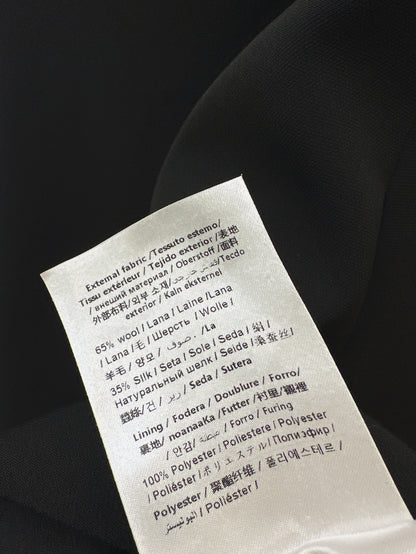 External fabric /Tessuto esterno/
Tissu extérieur / Tejido exterior /表地
/ внешний материал / Oberstoff /面料
外部布料/외부 소재/ /Tecdo
exterior / Kain eksternel
65% wool / Lana / Laine /Lana
/ Lana /毛 / Шерсть / Wolle /
羊毛/ 양모 / صوف / La
35% Silk / Seta / Soie / Seda /絹/
Натуральный шелк / Seide /桑蚕丝/
蠶絲/견/ حرير / Seda / Sutera
Lining / Fodera / Doublure / Forro/
裏地/ подкладка / Futter /衬里/襯裡
/ 안감/ بطانة / Forro / Furing
100% Polyester / Poliestere / Polyester
/ Poliéster /ポリエステル/ Полиэфир /
Polyester /聚酯纤维 / 폴리에스테르/
/ Poliéster /